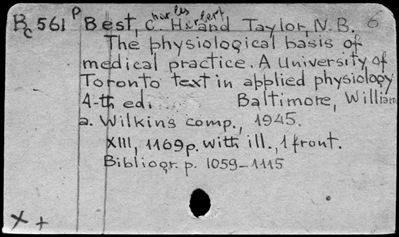 Bc 561 p Best, Charles Herbert and Taylor, N. B. 6
The physiological basis of
medical practice. A University of
Toronto text in applied physiology
4-th edi Baltimore, William
a. Wilkins comp., 1945.
XIII, 1169 p. with ill., 1 front.
Bibliogr. p. 1059-1115
x +